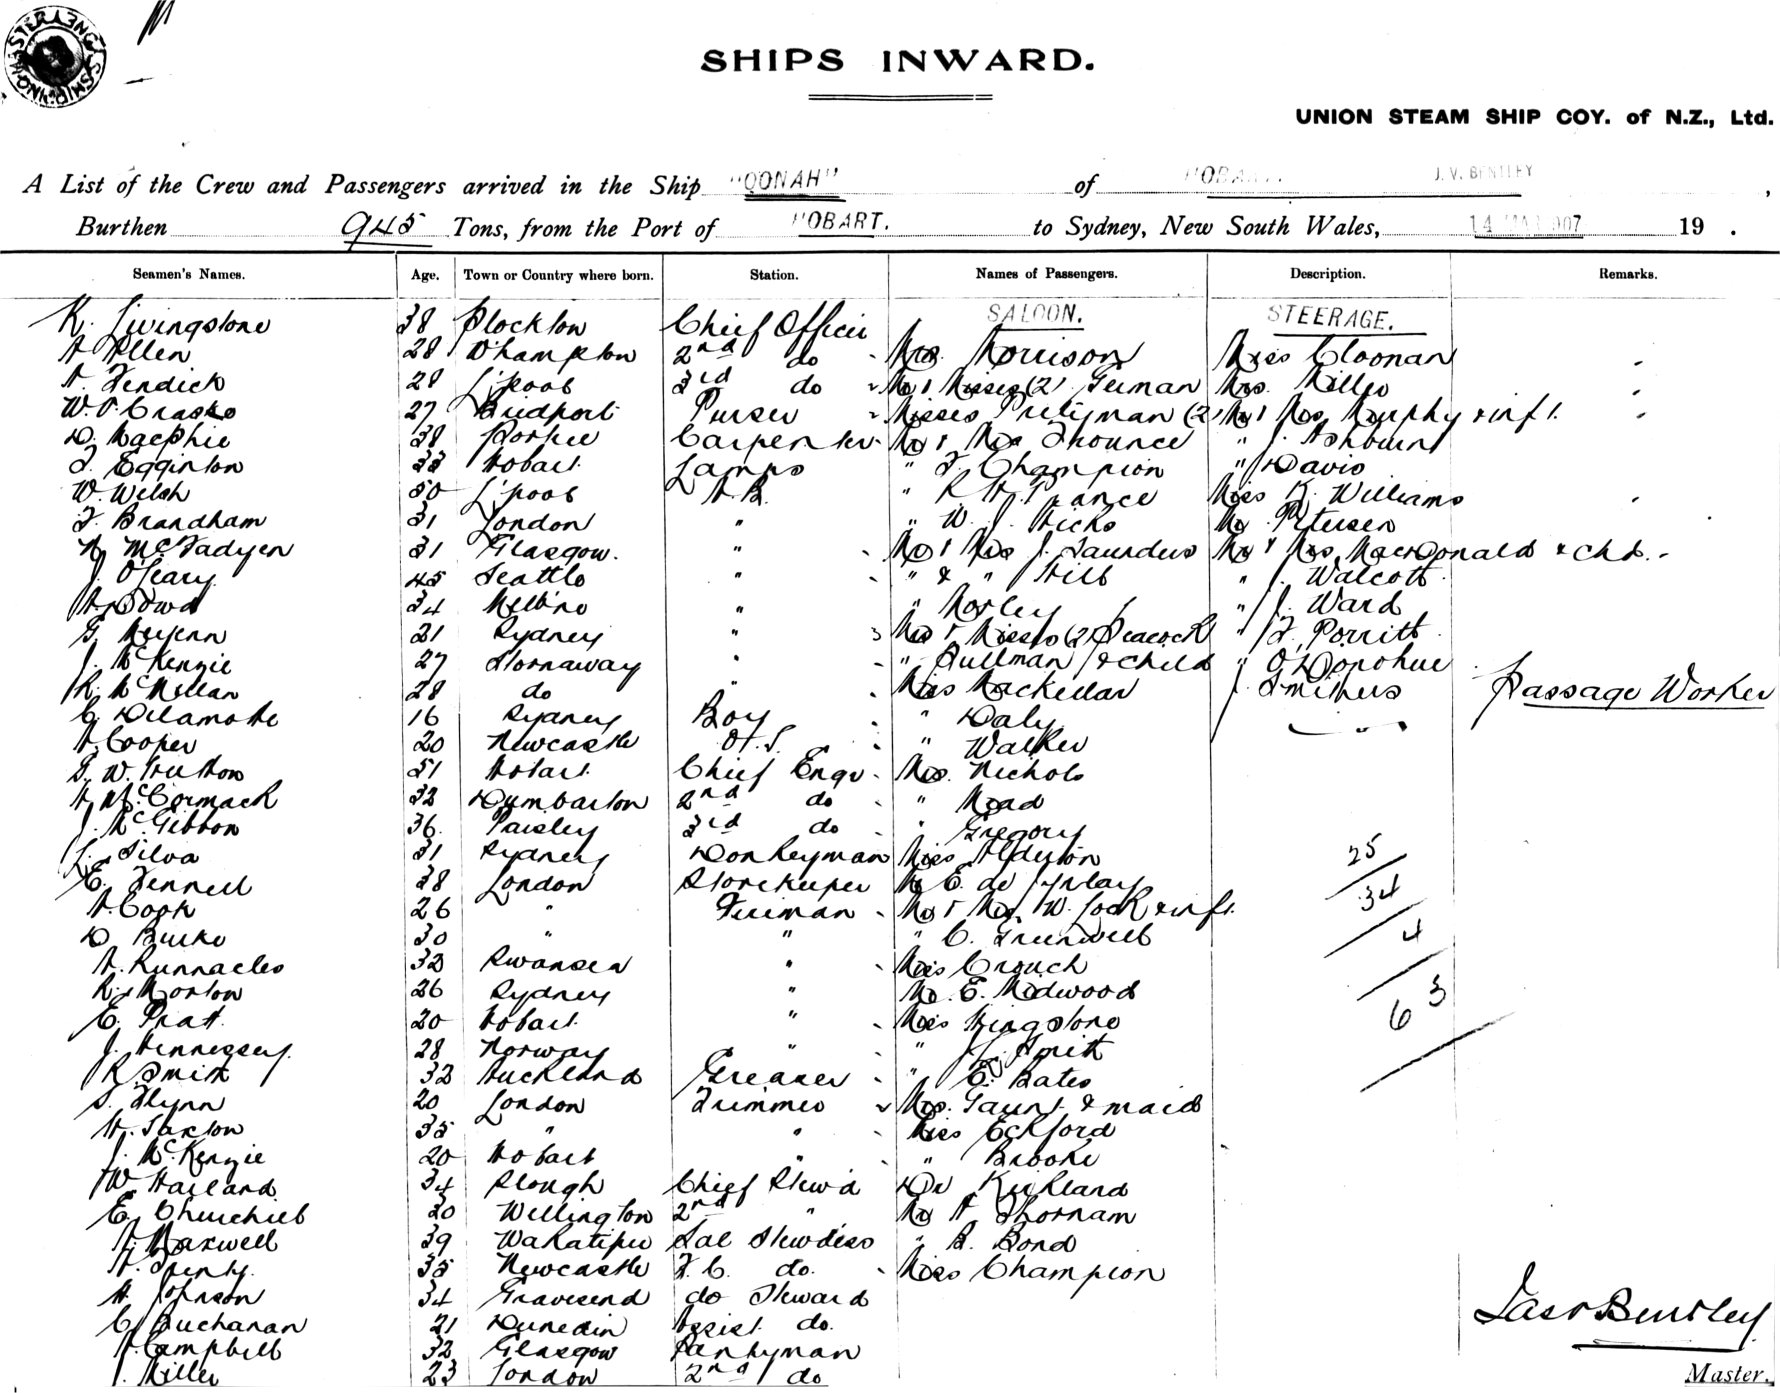 SHIPS INWARD.
UNION STEAM SHIP COY. of N.Z., Ltd.
A List of the Crew and Passengers arrived in the Ship "OONAH" of HOBART. J. V. BENTLEY
Burthen 945 Tons, from the Port of HOBART. to Sydney, New South Wales, 14 1907 19 .
Seamen's Names. Age. Town or Country where born. Station. Names of Passengers. Description. Remarks.
SALOON. STEERAGE.
K. Livingstone 38 Plockton Chief Officer
A Allen 28 W'hampton 2nd do Mrs. Morrison Miss Cloonan
A. Fendick 28 L'pool 3rd do Mr & Misses (2) German Mrs. Miller
W. Craske 27 Bridport Purser Misses Pretyman (2) Mr & Mrs Murphy & inft.
D. Macphie 38 Carpenter Mr & Mrs Thounce " J. Ashburn
F. Egginton 33 Hobart Lamps " F. Champion " Davis
W. Welsh 50 L'pool A.B. " R H Prance Miss K. Williams
F. Brandham 31 London " " W. J. Hicks Mr Petersen
N McFadyen 31 Glasgow. " Mr & Mrs J. Saunders Mr & Mrs MacDonald & chd.
J. O'Leary 45 Seattle " " & " Hill " J. Walcott
A. Dowd 34 Melb'ne " " Morley " J. Ward
G. 21 Sydney " Mr & Misses (2) Peacock " F. Porritt
J. McKenzie 27 Stornaway " " Pullman & child " O'Donohue
R. McMillan 28 do " Miss Mackellar J. Smithers Passage Worker
C. Delamothe 16 Sydney Boy " Daly
A. Cooper 20 Newcastle O.S. " Walker
G. W. Hutton 51 Hobart Chief Engr Mrs. Nichols
A McCormack 32 Dumbarton 2nd do " Mead
J. McGibbon 36. Paisley 3rd do " Gregory
L. Silva 31 Sydney Donkeyman Miss Alderton
C. Fennell 38 London Storekeeper Mr C. de
A. Cook 26 " Fireman Mr & Mrs. W. Lock & inft.
D Burke 30 " " " C. Greenwell
A. Runnacles 32 Swansea " Miss Crouch
R. Morton 26 Sydney " Mr. E. Midwood
C. Pratt 20 Hobart " Miss Kingstone
J. Hennessey. 28 Norway " " Smith
R Smith 32 Auckland Greaser " C. Bates
S. Flynn 20 London Trimmer Mrs. Gaunt & maid
H. Saxton 35 " " Miss Eckford
J. McKenzie 20 Hobart " " Brooke
W. Harland. 34 Slough Chief Stewd Dr Kirkland
E. Churchill 30 Wellington 2nd " Mr A Thornam
A. Maxwell 39 Wakatipu Sal Stewdess " B. Bond
A. 35 Newcastle F.C. do. Miss Champion
A. Johnson 34 Gravesend do Steward
C Buchanan 21 Dunedin Assist. do.
A. Campbell 32 Glasgow Pantryman
J. Miller 23 London 2nd do
25
34
4
63
Jas V Bentley
Master.